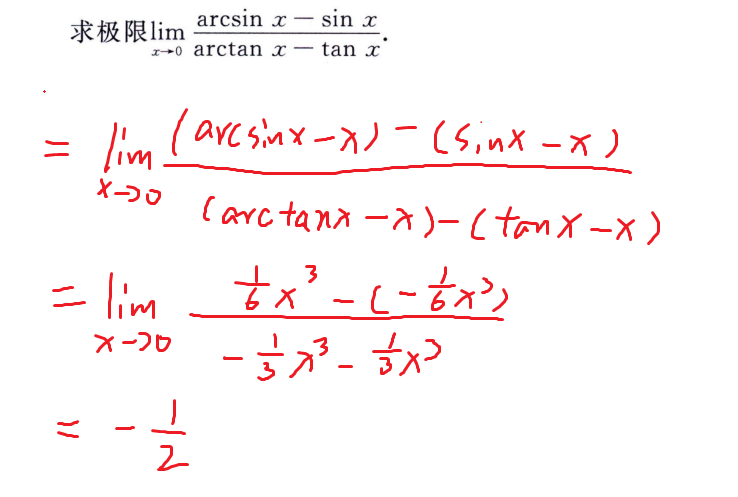 求极限lim x→0 (arcsin x − sin x)/(arctan x − tan x).
= lim x→0 ((arcsinx−x)−(sinx−x))/((arctanx−x)−(tanx−x))
= lim x→0 (1/6 x³−(−1/6 x³))/(−1/3 x³−1/3 x³)
= −1/2